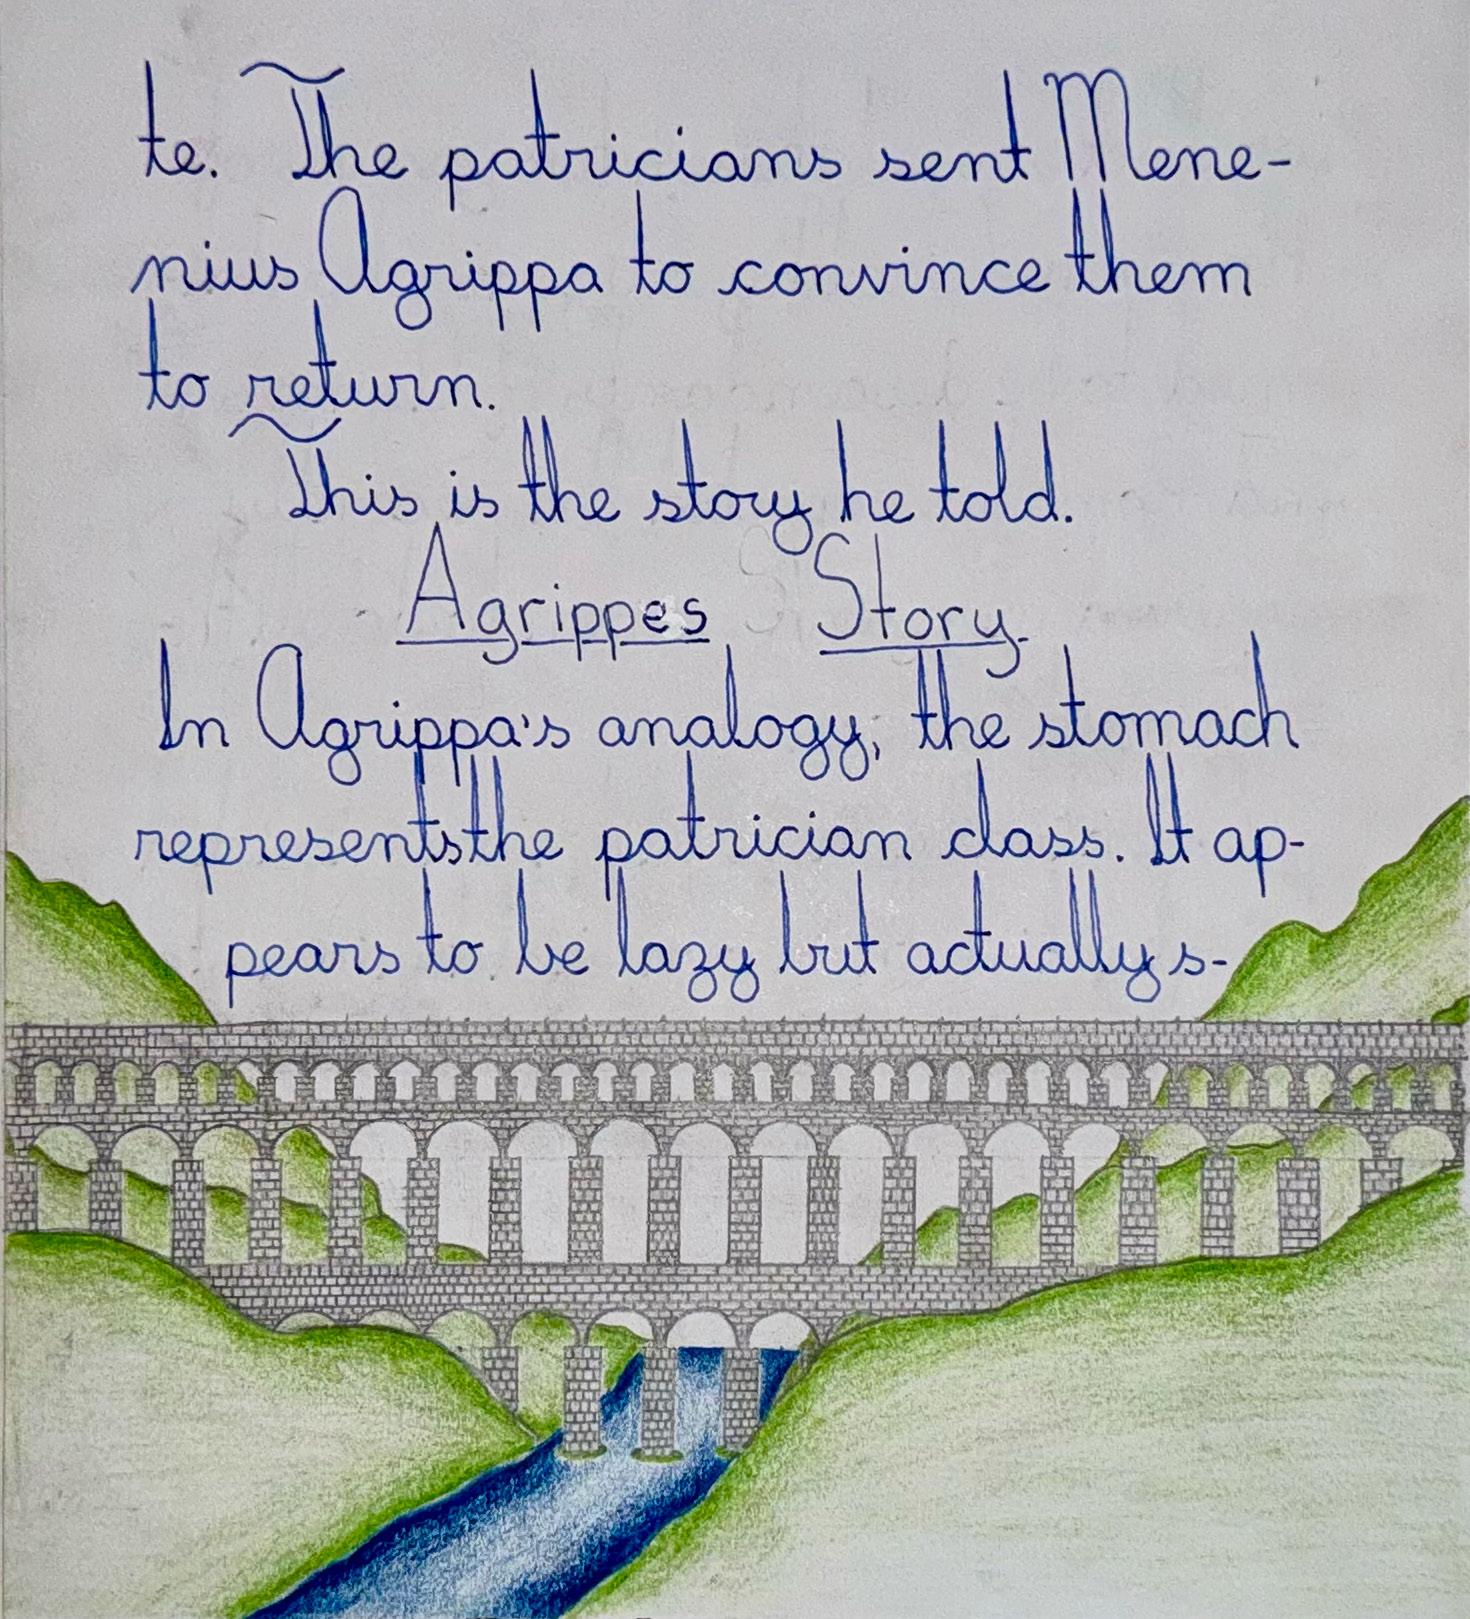 te. The patricians sent Mene-
nius Agrippa to convince them
to return.
This is the story he told.
Agrippes Story
In Agrippa's analogy, the stomach
representsthe patrician class. It ap-
pears to be lazy but actually s-